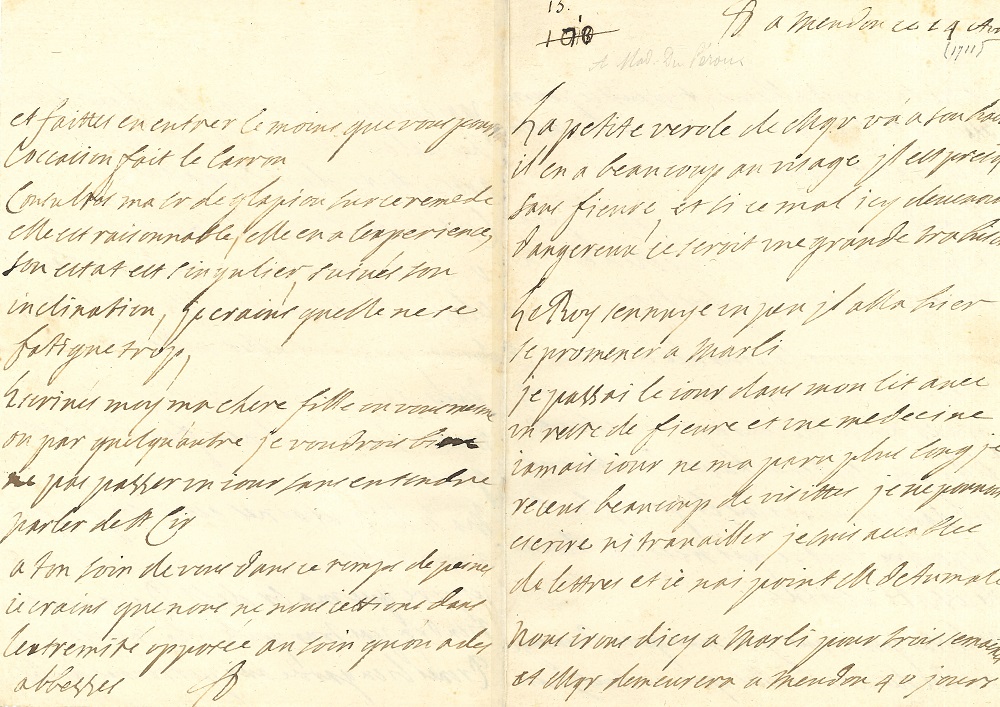 13.
108
A Mad. Du Pérou
a Meudon ce 14 Avr
(1711)
La petite verole de Mgr va a son
il en a beaucoup au visage jl est
sans fieure, et si ce mal icy
dangereux ce seroit une grande
Le Roy sennuye un peu jl alla hier
se promener a Marli
je passai le iour dans mon lit avec
un reste de fieure et une medecine
iamais iour ne ma paru plus long je
receus beaucoup de visittes je ne
escrire ni travailler je suis accablee
de lettres et ie nai point Md
Nous irons dicy a Marli pour trois
et Mgr demeurera a Meudon 40 jours
et faittes en entrer le moins que vous
loccasion fait le larron
Consultes ma sr de glapion sur ce remede
elle est raisonnable, elle en a lexperience,
son estat est singulier, suivés son
inclination, je crains quelle ne se
fatigue trop,
Escrivés moy ma chere fille ou vous mesme
ou par quelquautre je voudrois bien
ne pas passer un iour sans entendre
parler de St Cir
a ton soin de vous dans ce temps de peines
ie crains que nous ne nous iettions dans
lextremité opposée au soin quon a des
abbesses